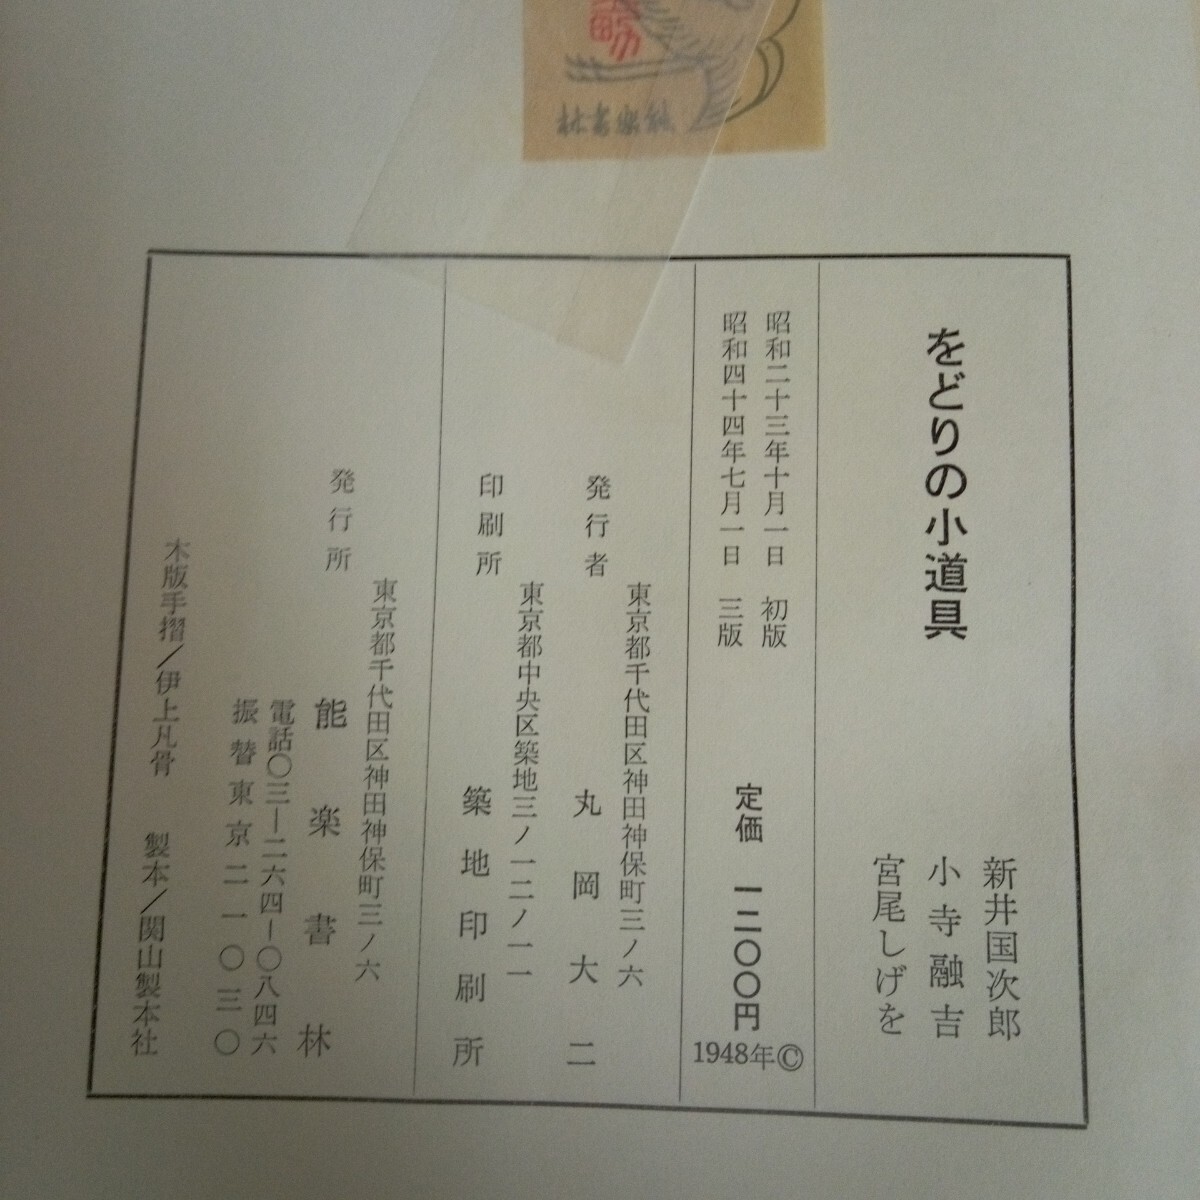 能楽書林
をどりの小道具
新井国次郎
小寺融吉
宮尾しげを
昭和二十三年十月一日 初版
昭和四十四年七月一日 三版
定価 一二〇〇円
1948年©
発行者
東京都千代田区神田神保町三ノ六
丸岡大二
印刷所
東京都中央区築地三ノ一二ノ一一
築地印刷所
発行所
東京都千代田区神田神保町三ノ六
能楽書林
電話〇三―二六四―〇八四六
振替東京二一〇三〇
木版手摺／伊上凡骨 製本／関山製本社